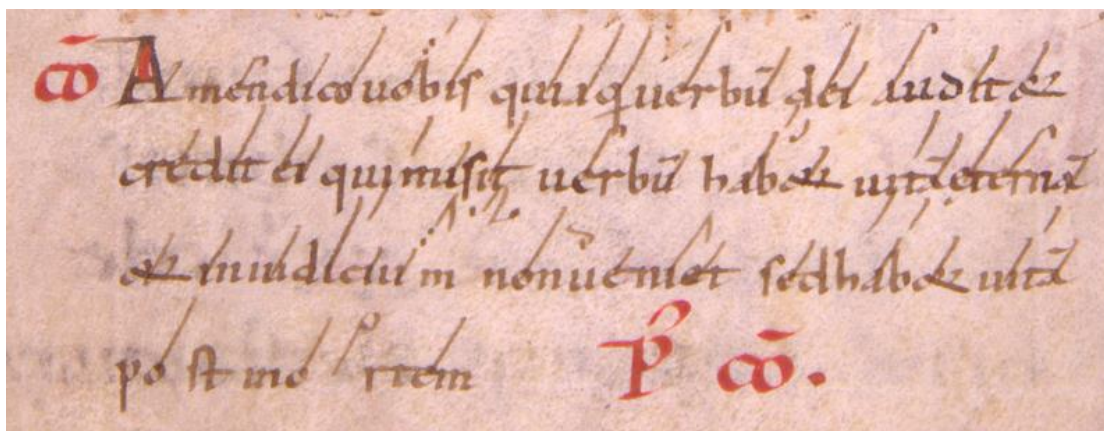 cō Amendico uobis quia q̄ uerbū dei audit &
credit ei qui misit uerbū hab& uitā eternā
& in iudicium non ueniet sed hab& uitā
post mortem P̄ cō.